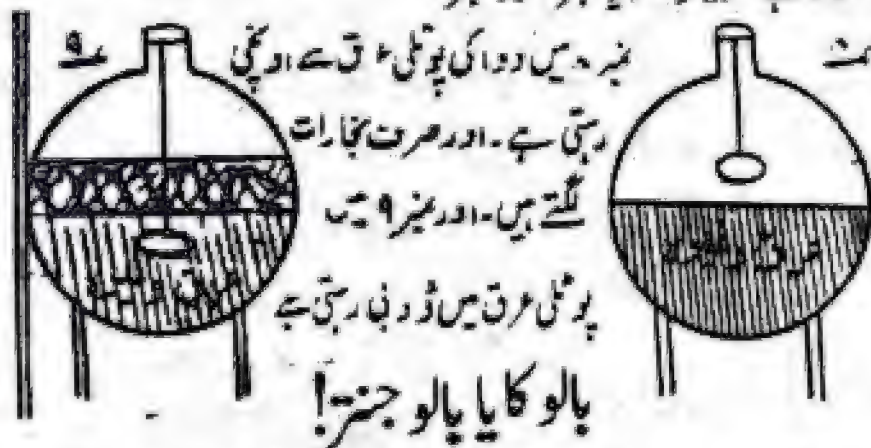 نمبر ۸ میں دوا کی پوٹلی عرق سے اونچی
رہتی ہے۔ اور صرف بخارات
لگتے ہیں۔ اور نمبر ۹ میں
پوٹلی عرق میں ڈوبی رہتی ہے
بالو کا یا بالو جنتر!
۸
عرق وغیرہ
۹